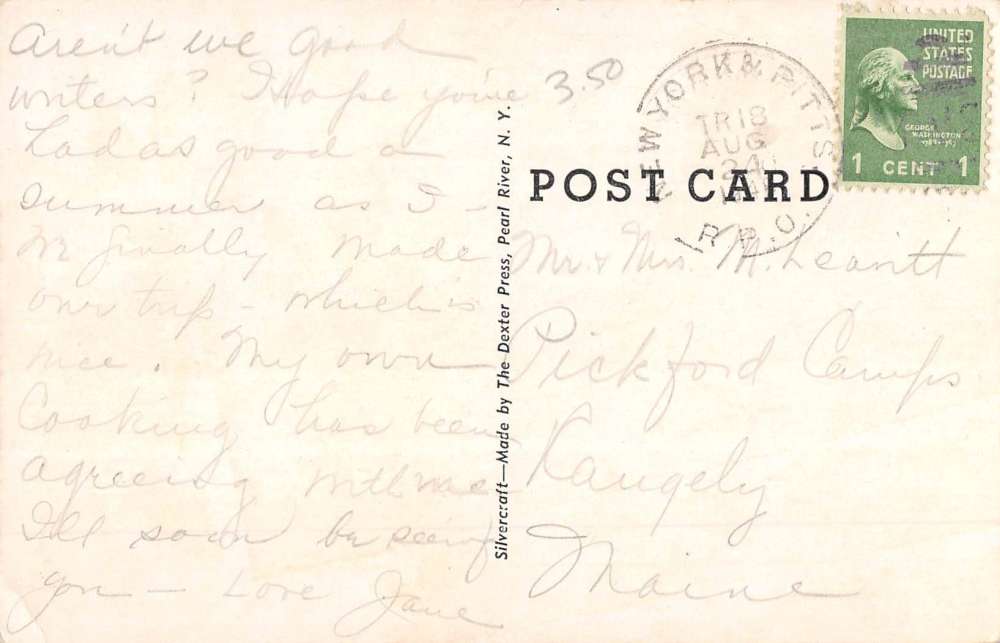 Aren't we good
writers? I hope you've
had as good a
summer as I -
We finally made
our trip - which is
nice. My own
Cooking has been
agreeing with me
I'll soon be seeing
you - Love Jane
3.50
Silvercraft—Made by The Dexter Press, Pearl River, N. Y.
NEW YORK & PITTS
TR18
AUG
24
R.P.O.
UNITED
STATES
POSTAGE
GEORGE
WASHINGTON
1 CENT 1
POST CARD
Mr. & Mrs. M. Leavitt
Pickford Camps
Rangely
Maine